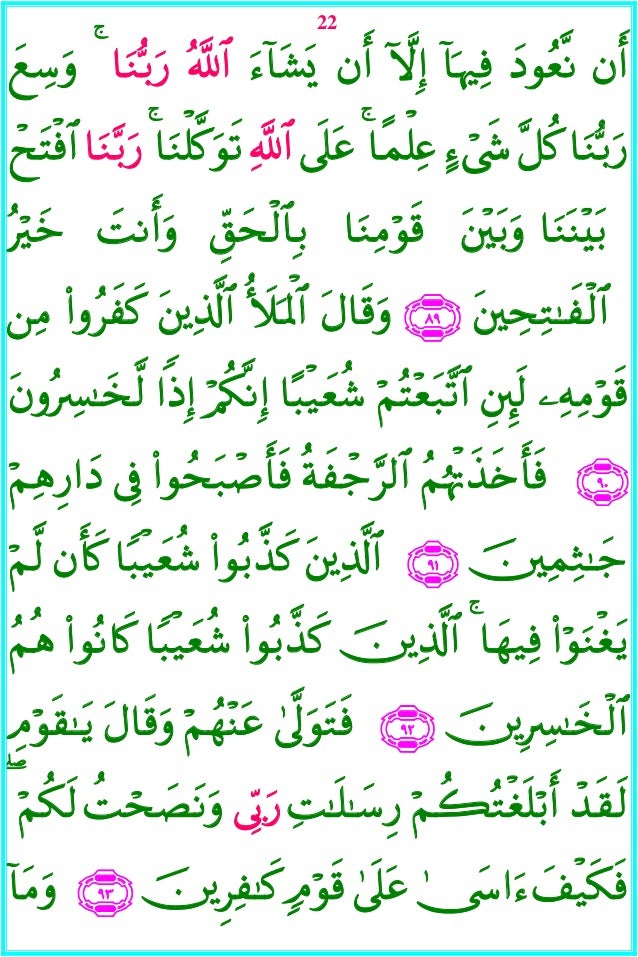 22
أَن نَّعُودَ فِيهَآ إِلَّآ أَن يَشَآءَ ٱللَّهُ رَبُّنَا ۚ وَسِعَ
رَبُّنَا كُلَّ شَىْءٍ عِلْمًا ۚ عَلَى ٱللَّهِ تَوَكَّلْنَا ۚ رَبَّنَا ٱفْتَحْ
بَيْنَنَا وَبَيْنَ قَوْمِنَا بِٱلْحَقِّ وَأَنتَ خَيْرُ
ٱلْفَـٰتِحِينَ ٨٩ وَقَالَ ٱلْمَلَأُ ٱلَّذِينَ كَفَرُوا۟ مِن
قَوْمِهِۦ لَئِنِ ٱتَّبَعْتُمْ شُعَيْبًا إِنَّكُمْ إِذًا لَّخَـٰسِرُونَ
٩٠ فَأَخَذَتْهُمُ ٱلرَّجْفَةُ فَأَصْبَحُوا۟ فِى دَارِهِمْ
جَـٰثِمِينَ ٩١ ٱلَّذِينَ كَذَّبُوا۟ شُعَيْبًا كَأَن لَّمْ
يَغْنَوْا۟ فِيهَا ۚ ٱلَّذِينَ كَذَّبُوا۟ شُعَيْبًا كَانُوا۟ هُمُ
ٱلْخَـٰسِرِينَ ٩٢ فَتَوَلَّىٰ عَنْهُمْ وَقَالَ يَـٰقَوْمِ
لَقَدْ أَبْلَغْتُكُمْ رِسَـٰلَـٰتِ رَبِّى وَنَصَحْتُ لَكُمْ ۖ
فَكَيْفَ ءَاسَىٰ عَلَىٰ قَوْمٍ كَـٰفِرِينَ ٩٣ وَمَآ